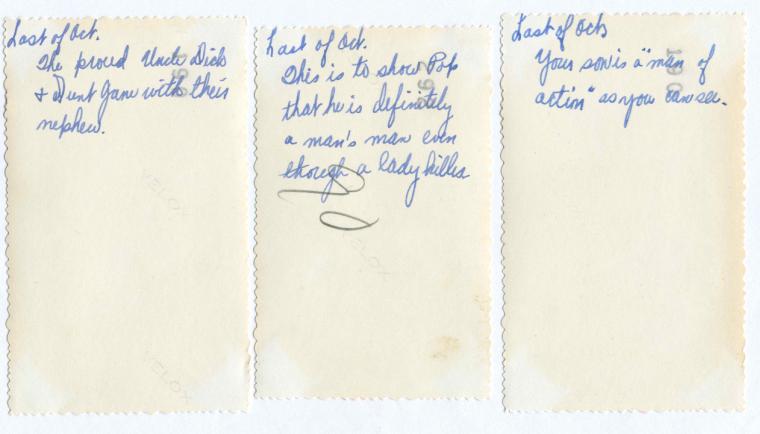 Last of Oct.
The proud Uncle Dick
+ Aunt Jane with their
nephew.
VELOX
VELOX
Last of Oct.
This is to show Pop
that he is definitely
a man's man even
though a lady killer
VELOX
Last of Oct
Your son is a "man of
action" as you can see.